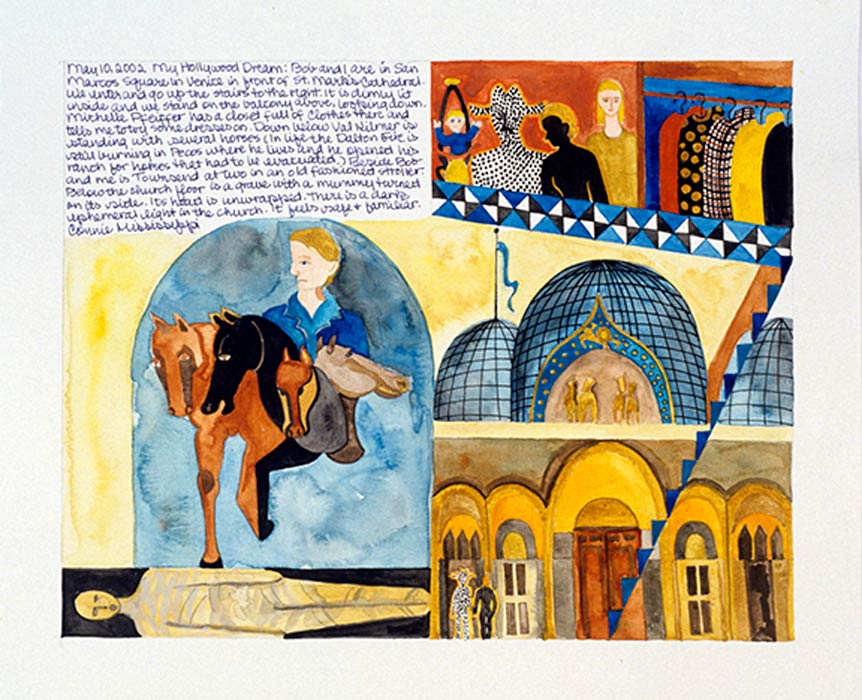 May 10, 2002 My Hollywood Dream: Bob and I are in San
Marcos Square in Venice in front of St. Mark's Cathedral.
We enter and go up the stairs to the right. It is dimly lit
inside and we stand on the balcony above, looking down.
Michelle Pfeiffer has a closet full of clothes there and
tells me to try some dresses on. Down below Val Kilmer is
standing with several horses (In life the Dalton fire is
still burning in Pecos where he lives and he opened his
ranch for horses that had to be evacuated.) Beside Bob
and me is Townsend at two in an old fashioned stroller.
Below the church floor is a grave with a mummy turned
on its side. Its head is unwrapped. There is a dark
ephemeral light in the church. It feels safe & familiar.
Connie Mississippi